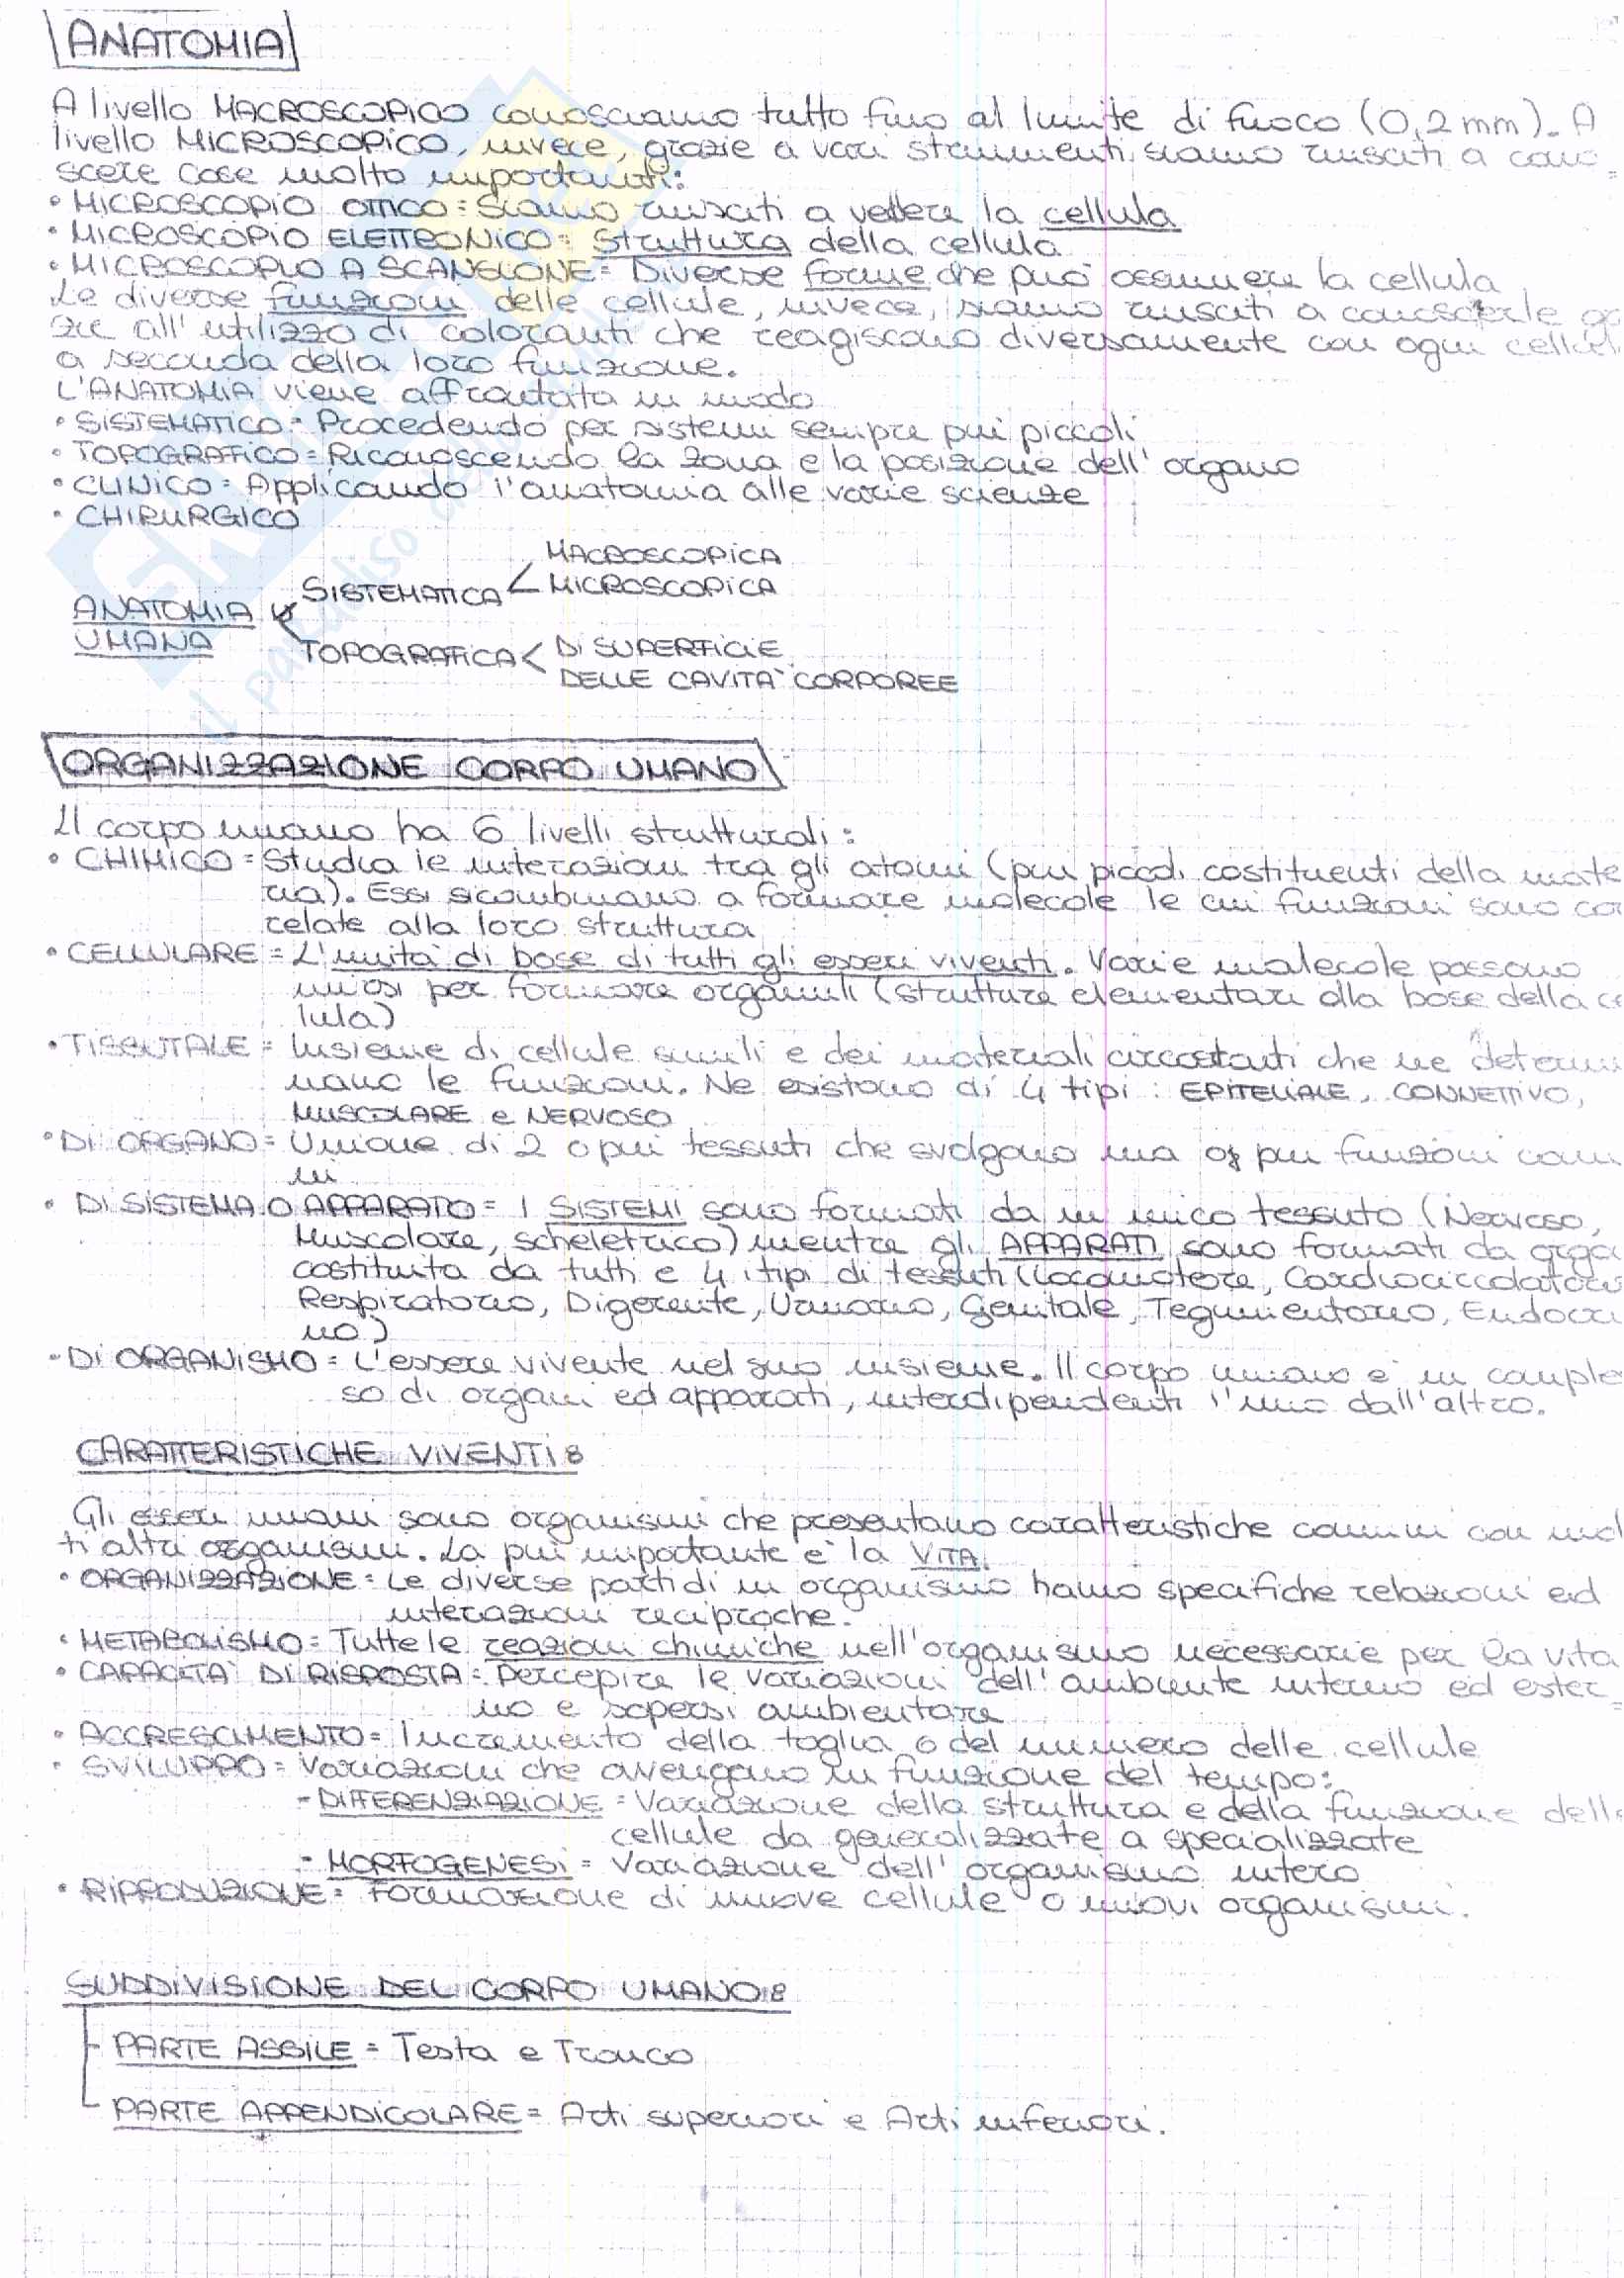 ANATOMIA
A livello MACROSCOPICO conosciamo tutto fino al limite di fuoco (0,2 mm). A
livello MICROSCOPICO, invece, grazie a vari strumenti, siamo riusciti a cono
scere cose molto importanti:
• MICROSCOPIO OTTICO = Siamo riusciti a vedere la cellula
• MICROSCOPIO ELETTRONICO = Struttura della cellula
• MICROSCOPIO A SCANSIONE = Diverse forme che può assumere la cellula
Le diverse funzioni delle cellule, invece, siamo riusciti a conoscerle gra
zie all'utilizzo di coloranti che reagiscono diversamente con ogni cellul
a seconda della loro funzione.
L'ANATOMIA viene affrontata in modo
• SISTEMATICO = Procedendo per sistemi sempre più piccoli
• TOPOGRAFICO = Riconoscendo la zona e la posizione dell'organo
• CLINICO = Applicando l'anatomia alle varie scienze
• CHIRURGICO
MACROSCOPICA
SISTEMATICA < MICROSCOPICA
ANATOMIA
UMANA
TOPOGRAFICA < DI SUPERFICIE
DELLE CAVITA' CORPOREE
ORGANIZZAZIONE CORPO UMANO
Il corpo umano ha 6 livelli strutturali:
• CHIMICO = Studia le interazioni tra gli atomi (più piccoli costituenti della mate
ria). Essi si combinano a formare molecole le cui funzioni sono cor
relate alla loro struttura
• CELLULARE = L'unità di base di tutti gli esseri viventi. Varie molecole possono
unirsi per formare organuli (strutture elementari alla base della ce
lula)
• TISSUTALE = Insieme di cellule simili e dei materiali circostanti che ne determi
nano le funzioni. Ne esistono di 4 tipi: EPITELIALE, CONNETTIVO,
MUSCOLARE e NERVOSO
• DI ORGANO = Unione di 2 o più tessuti che svolgono una o più funzioni comu
ni
• DI SISTEMA O APPARATO = I SISTEMI sono formati da un unico tessuto (Nervoso,
Muscolare, scheletrico) mentre gli APPARATI sono formati da orga
costituita da tutti e 4 i tipi di tessuti (Locomotore, Cardiocircolatorio
Respiratorio, Digerente, Urinario, Genitale, Tegumentario, Endocri
no)
• DI ORGANISMO = L'essere vivente nel suo insieme. Il corpo umano è un comples
so di organi ed apparati, interdipendenti l'uno dall'altro.
CARATTERISTICHE VIVENTI:
Gli esseri umani sono organismi che presentano caratteristiche comuni con mol
ti altri organismi. La più importante è la VITA.
• ORGANIZZAZIONE = Le diverse parti di un organismo hanno specifiche relazioni ed
interazioni reciproche.
• METABOLISMO = Tutte le reazioni chimiche nell'organismo necessarie per la vita
• CAPACITA' DI RISPOSTA = Percepire le variazioni dell'ambiente interno ed ester
no e sapersi ambientare
• ACCRESCIMENTO = Incremento della taglia o del numero delle cellule
• SVILUPPO = Variazioni che avvengono in funzione del tempo:
- DIFFERENZIAZIONE = Variazione della struttura e della funzione delle
cellule da generalizzate a specializzate
- MORFOGENESI = Variazione dell'organismo intero
• RIPRODUZIONE = Formazione di nuove cellule o nuovi organismi.
SUDDIVISIONE DEL CORPO UMANO:
PARTE ASSILE = Testa e Tronco
PARTE APPENDICOLARE = Arti superiori e Arti inferiori.